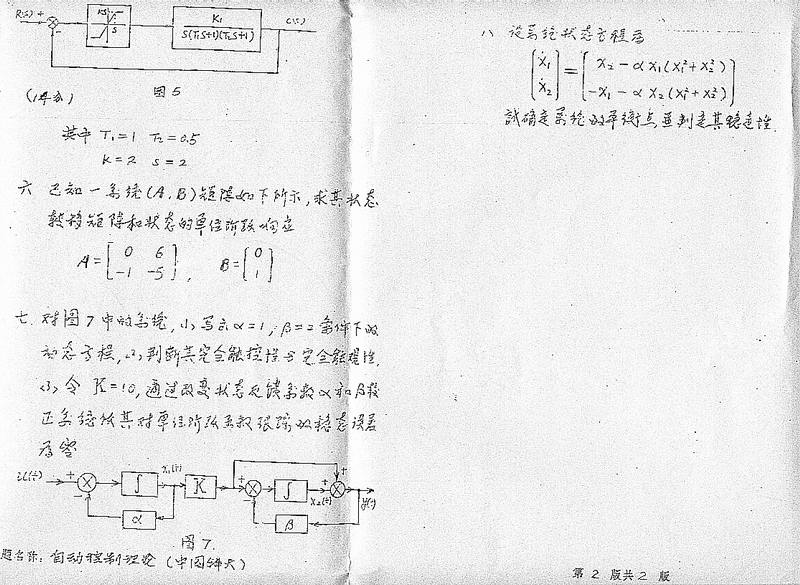 R(s) +
-
KS
S
K₁
S(T₁S+1)(T₂S+1)
C(s)
图5
其中 T₁=1 T₂=0.5
K=2 S=2
六 已知一系统(A,B)矩阵如下所示,求其状态
转移矩阵和状态的单位阶跃响应
A=[0 6
-1 -5], B=[0
1]
七. 对图7中的系统, (1) 写出 α=1, β=2 条件下的
动态方程, (2) 判断其完全能控性与完全能观性.
(3) 令 K=10, 通过改变状态反馈系数α和β校
正系统使其对单位阶跃函数跟踪的稳态误差
为零
+
-
∫
x₁(t)
K
α
+
-
∫
x₂(t)
+
+
y(t)
β
图7.
题名称: 自动控制理论 (中国科大)
八 设系统状态方程为
[ẋ₁
ẋ₂] = [x₂ - αx₁(x₁²+x₂²)
-x₁ - αx₂(x₁²+x₂²)]
试确定系统的平衡点并判定其稳定性.
第 2 版共 2 版